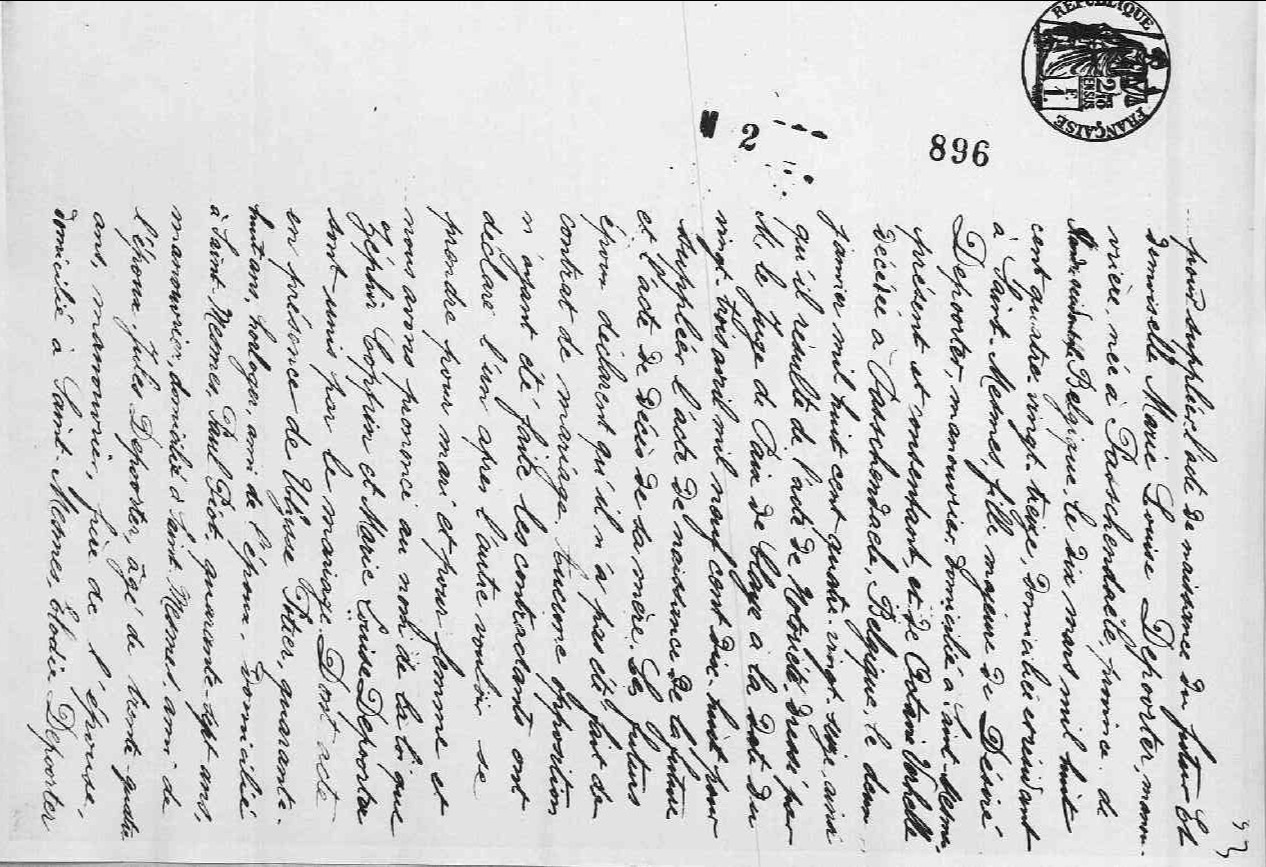 RÉPUBLIQUE FRANÇAISE
2/10 EN SUS
1 F.
896
2
pour suppléer l'acte de naissance du futur Et
demoiselle Marie Louise Deporter, manou-
vrière, née à Passchendaële, province de
Belgique, le dix mars mil huit
cent quatre vingt-treize, domiciliée et résidant
à Saint-Mesmes, fille majeure de Désiré
Deporter, manouvrier, domicilié à Saint-Mesmes,
présent et consentant, et de
décédée à Passchendaele, Belgique, le deux
janvier mil huit cent quatre-vingt-seize, ainsi
qu'il résulte de l'acte de Notoriété dressé par
M. le Juge de Paix de Claye à la date du
vingt-trois avril mil neuf cent dix-huit pour
suppléer l'acte de naissance de la future
et l'acte de décès de sa mère. Les futurs
époux déclarent qu'il n'a pas été fait de
contrat de mariage. Aucune opposition
n'ayant été faite les contractants ont
déclaré l'un après l'autre vouloir se
prendre pour mari et pour femme et
nous avons prononcé au nom de la loi que
Zéphir Coffrin et Marie Louise Deporter
sont unis par le mariage. Dont acte
en présence de Ulysse Potier, quarante-
huit ans, horloger, ami de l'époux, domicilié
à Saint-Mesmes, Paul Piot, quarante-sept ans,
manouvrier, domicilié à Saint Mesmes, ami de
l'époux, Jules Deporter, âgé de trente quatre
ans, manouvrier, frère de l'épouse,
domicilié à Saint-Mesmes, Elodie Deporter